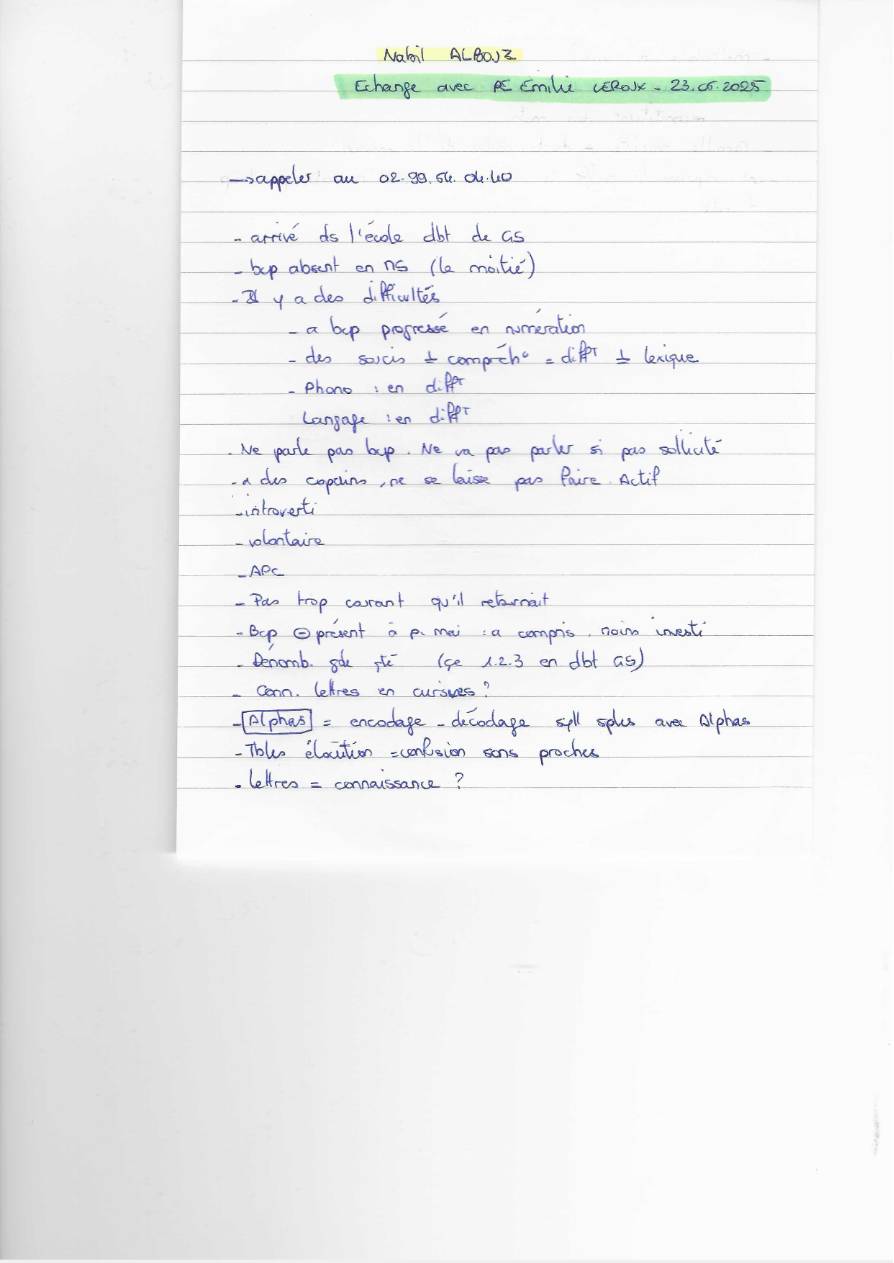 Nabil ALBOUZ
Echange avec PE Emilie LEROUX - 23.05.2025
→ appeler au 02.99.54.04.40
- arrivé ds l'école dbt de GS
- bcp absent en MS (la moitié)
- Il y a des difficultés
- a bcp progressé en numération
- des soucis compréh° = diffT lexique
- Phono : en diffT
Langage : en diffT
- Ne parle pas bcp. Ne va pas parler si pas sollicité
- a des copains, ne se laisse pas faire. Actif
- introverti
- volontaire
- APC
- Pas trop courant qu'il retournait
- Bcp ⊖ présent à p. mai : a compris, moins investi
- Dénomb. gde qté (çe 1.2.3 en dbt GS)
- Conn. lettres en cursives ?
- Alphas = encodage - décodage syll splus avec Alphas
- Tbles élocution = confusion sons proches
- lettres = connaissance ?